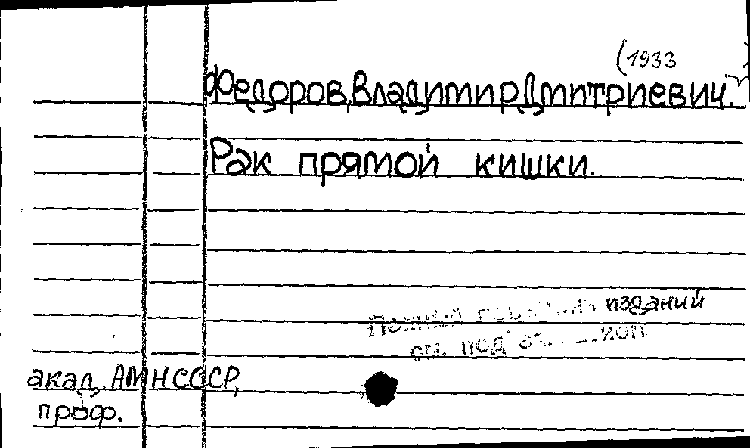 (1933
Федоров, Владимир Дмитриевич.
Рак прямой кишки.
изданий
см. под
акад. АМН СССР,
проф.